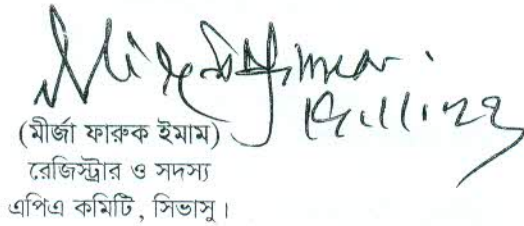 (মীর্জা ফারুক ইমাম)
রেজিস্ট্রার ও সদস্য
এপিএ কমিটি, সিভাসু।